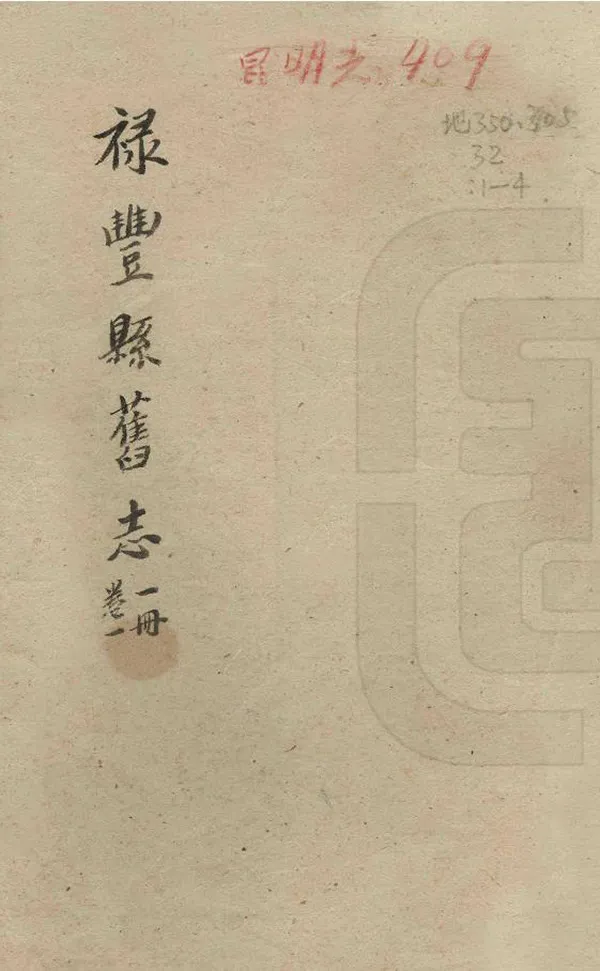 昆明 409
地350.305
32
:1-4
祿豐縣舊志
一冊
卷一